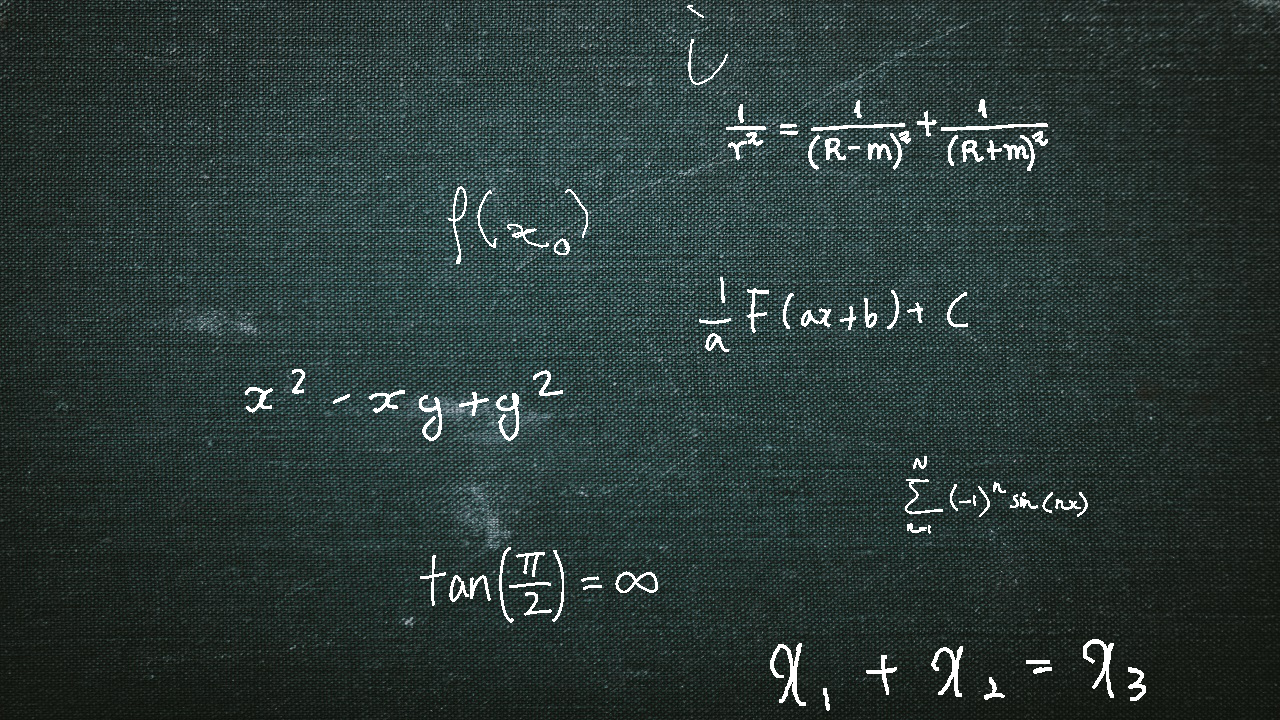 i
1/r² = 1/(R-m)² + 1/(R+m)²
f(x₀)
1/a F(ax+b) + C
x² - xy + y²
∑_{n=1}^{N} (-1)ⁿ sin(nx)
tan(π/2) = ∞
x₁ + x₂ = x₃